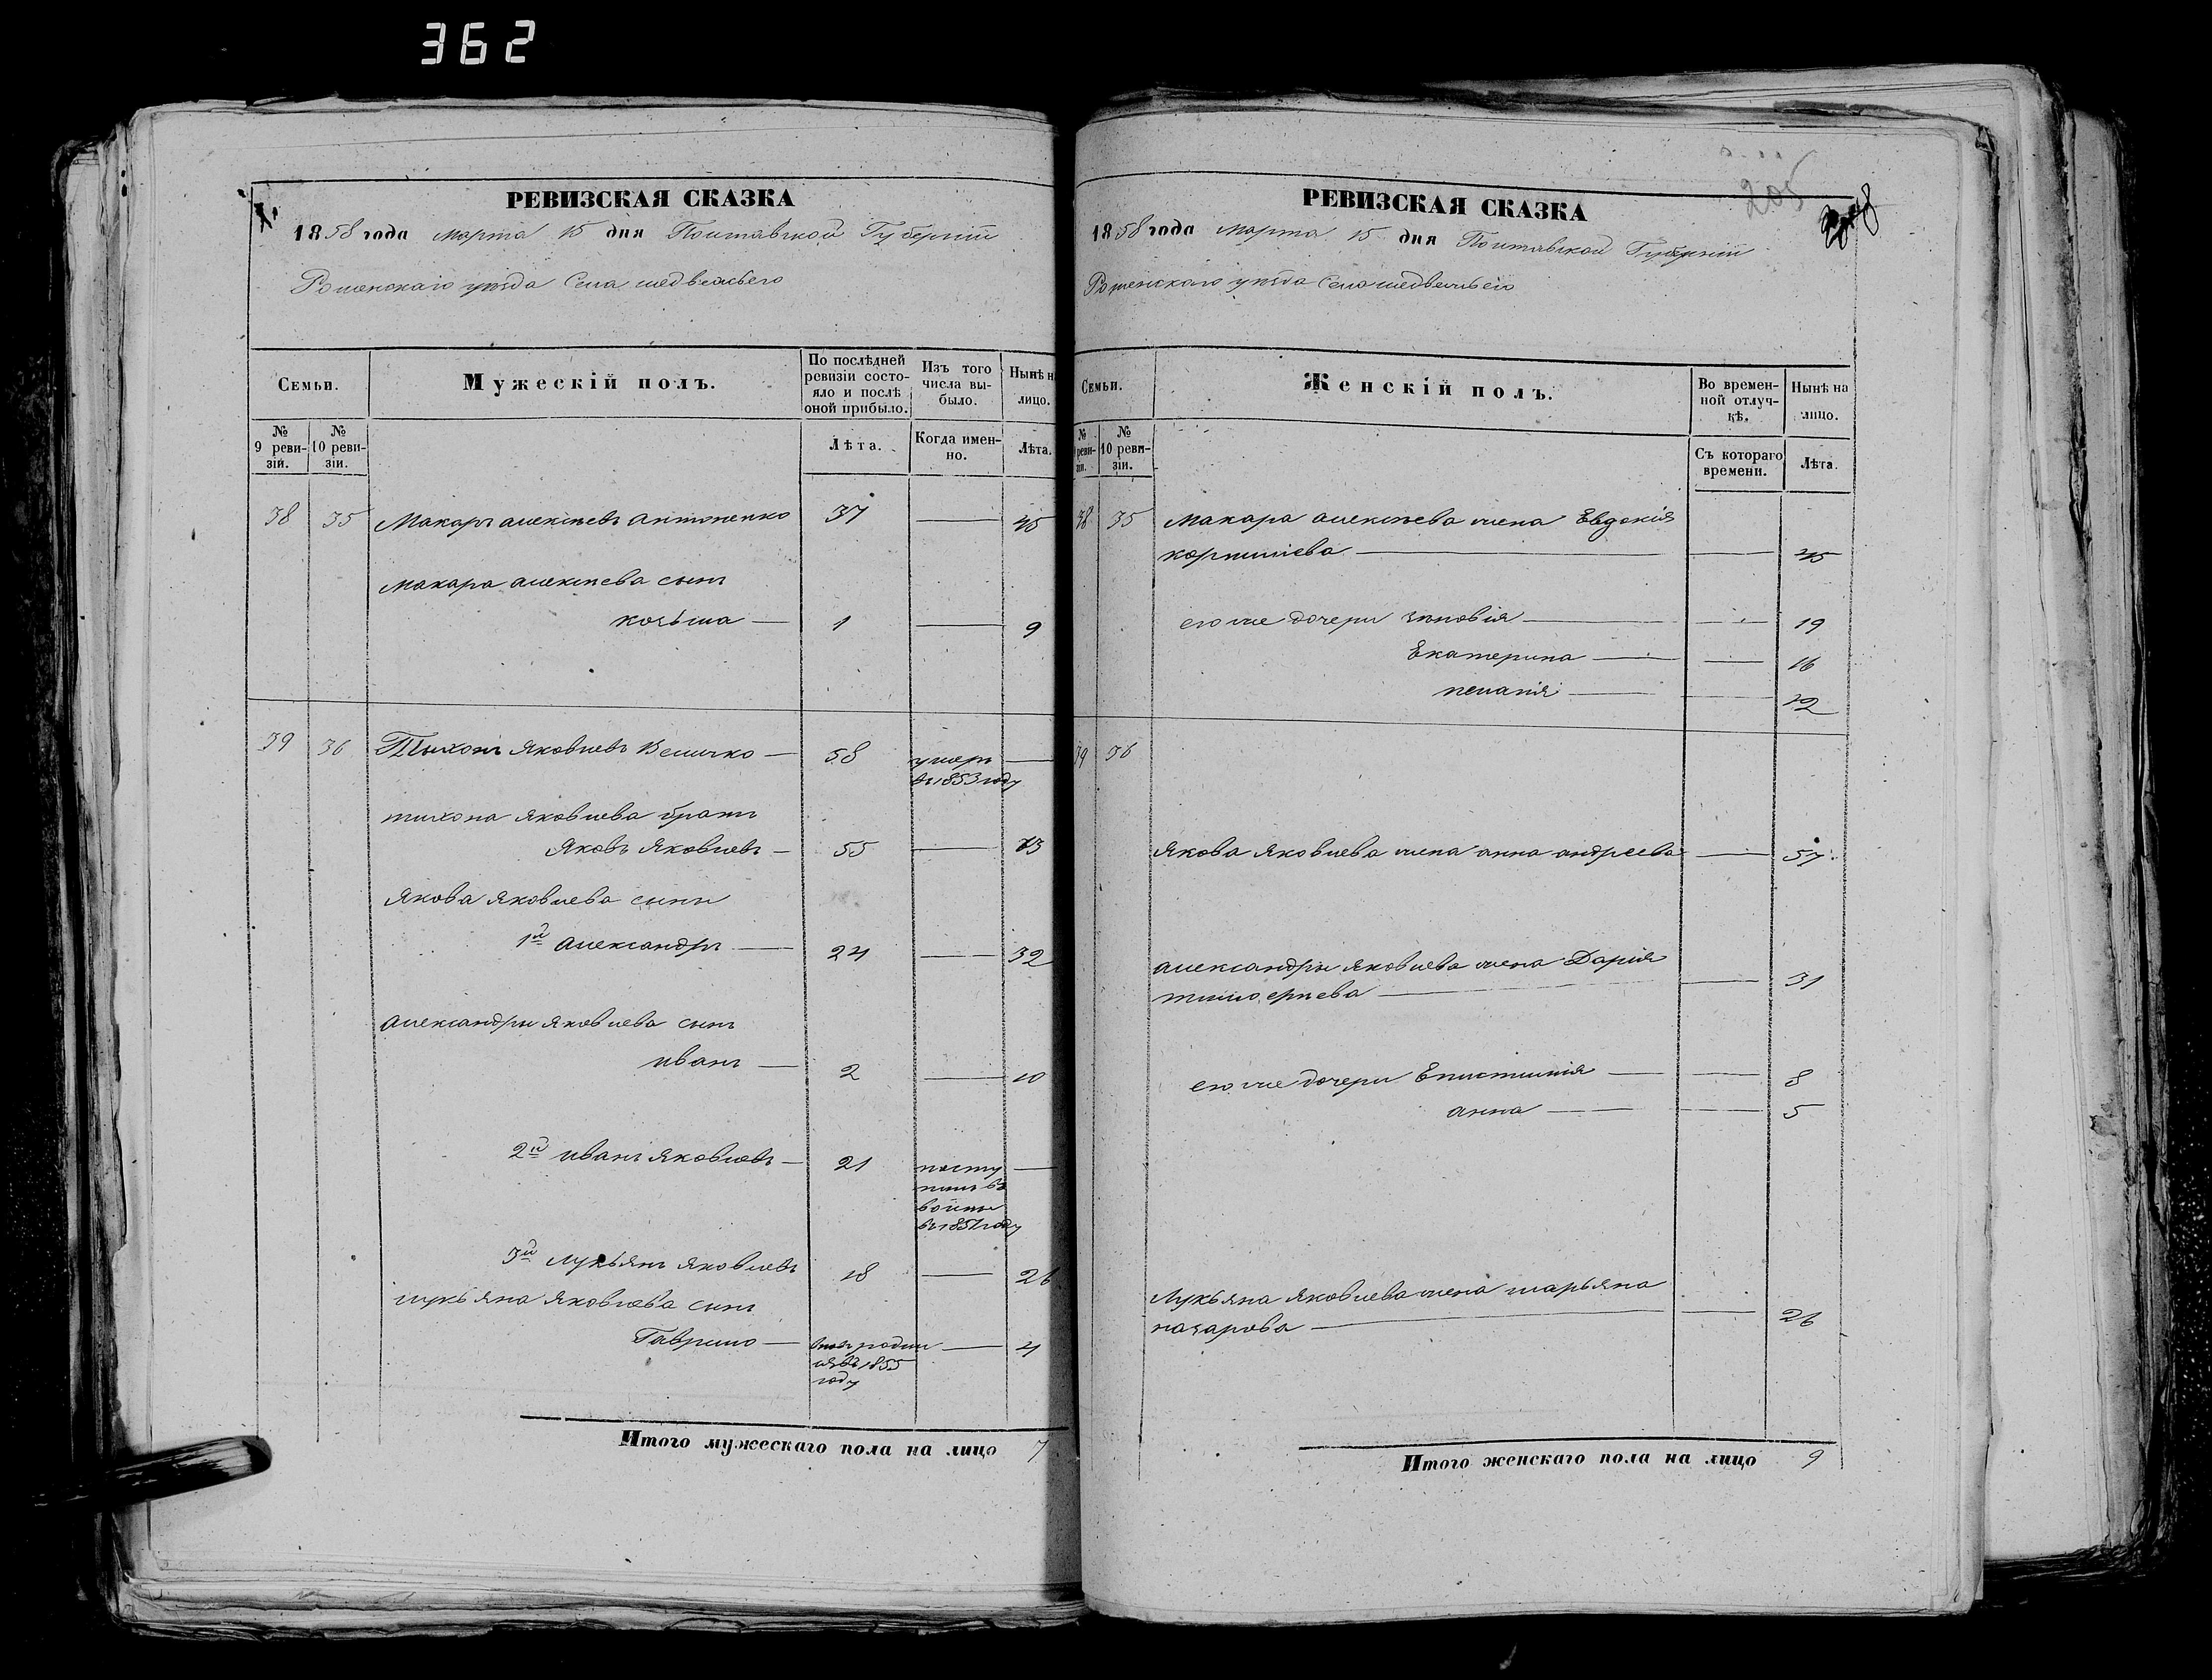 362
РЕВИЗСКАЯ СКАЗКА
1858 года марта 15 дня Полтавской Губерніи
Роменскаго уѣзда Села медвежьего
Семьи.
Мужескій полъ.
По послѣдней ревизіи состояло и послѣ оной прибыло.
Изъ того числа выбыло.
Нынѣ на лицо.
№ 9 ревизіи.
№ 10 ревизіи.
Лѣта.
Когда именно.
Лѣта.
38 35 Макаръ алексѣевъ антоненко 37 — 45
Макара алексѣева сынъ
козьма — 1 — 9
39 36 Тихонъ Яковлевъ Величко — 58 умеръ —
въ 1853 году
тихона Яковлева братъ
Яковъ Яковлевъ — 55 — 63
Якова Яковлева сыны
1й александръ — 24 — 32
александры Яковлева сынъ
иванъ — 2 — 10
2й иванъ Яковлевъ — 21 посту —
пилъ въ
въ 1851 году
3й лукьянъ Яковлевъ 18 — 26
лукьяна Яковлева сынъ
Гаврило — родил — 4
ся въ 1855
году
Итого мужескаго пола на лицо 7
205
РЕВИЗСКАЯ СКАЗКА
1858 года марта 15 дня Полтавской Губерніи
Роменскаго уѣзда Села медвежьего
Семьи.
Женскій полъ.
Во временной отлучкѣ.
Нынѣ на лицо.
№ 9 ревизіи.
№ 10 ревизіи.
Съ котораго времени.
Лѣта.
38 35 Макара алексѣева жена Евдокія
корниліева — — 45
его же дочери зиновія — — 19
Екатерина — — 16
меланія — — 12
39 36
Якова Яковлева жена анна андреева — 57
александры Яковлева жена Дарія
тимоѳеева — — 31
его же дочери Епистимія — — 8
анна — — 5
Лукьяна Яковлева жена марьяна
назарова — — 26
Итого женскаго пола на лицо 9